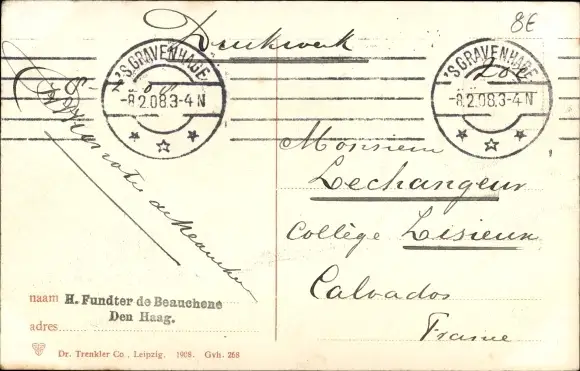 8E
Drukwerk
'S GRAVENHAGE
-8.2.08.3-4 N
'S GRAVENHAGE
-8.2.08.3-4 N
Monsieur
Lechangeur
Collège Lisieux
Calvados
France
de Beauchene
naam H. Fundter de Beauchene
Den Haag.
adres
Dr. Trenkler Co., Leipzig. 1908. Gvh. 268